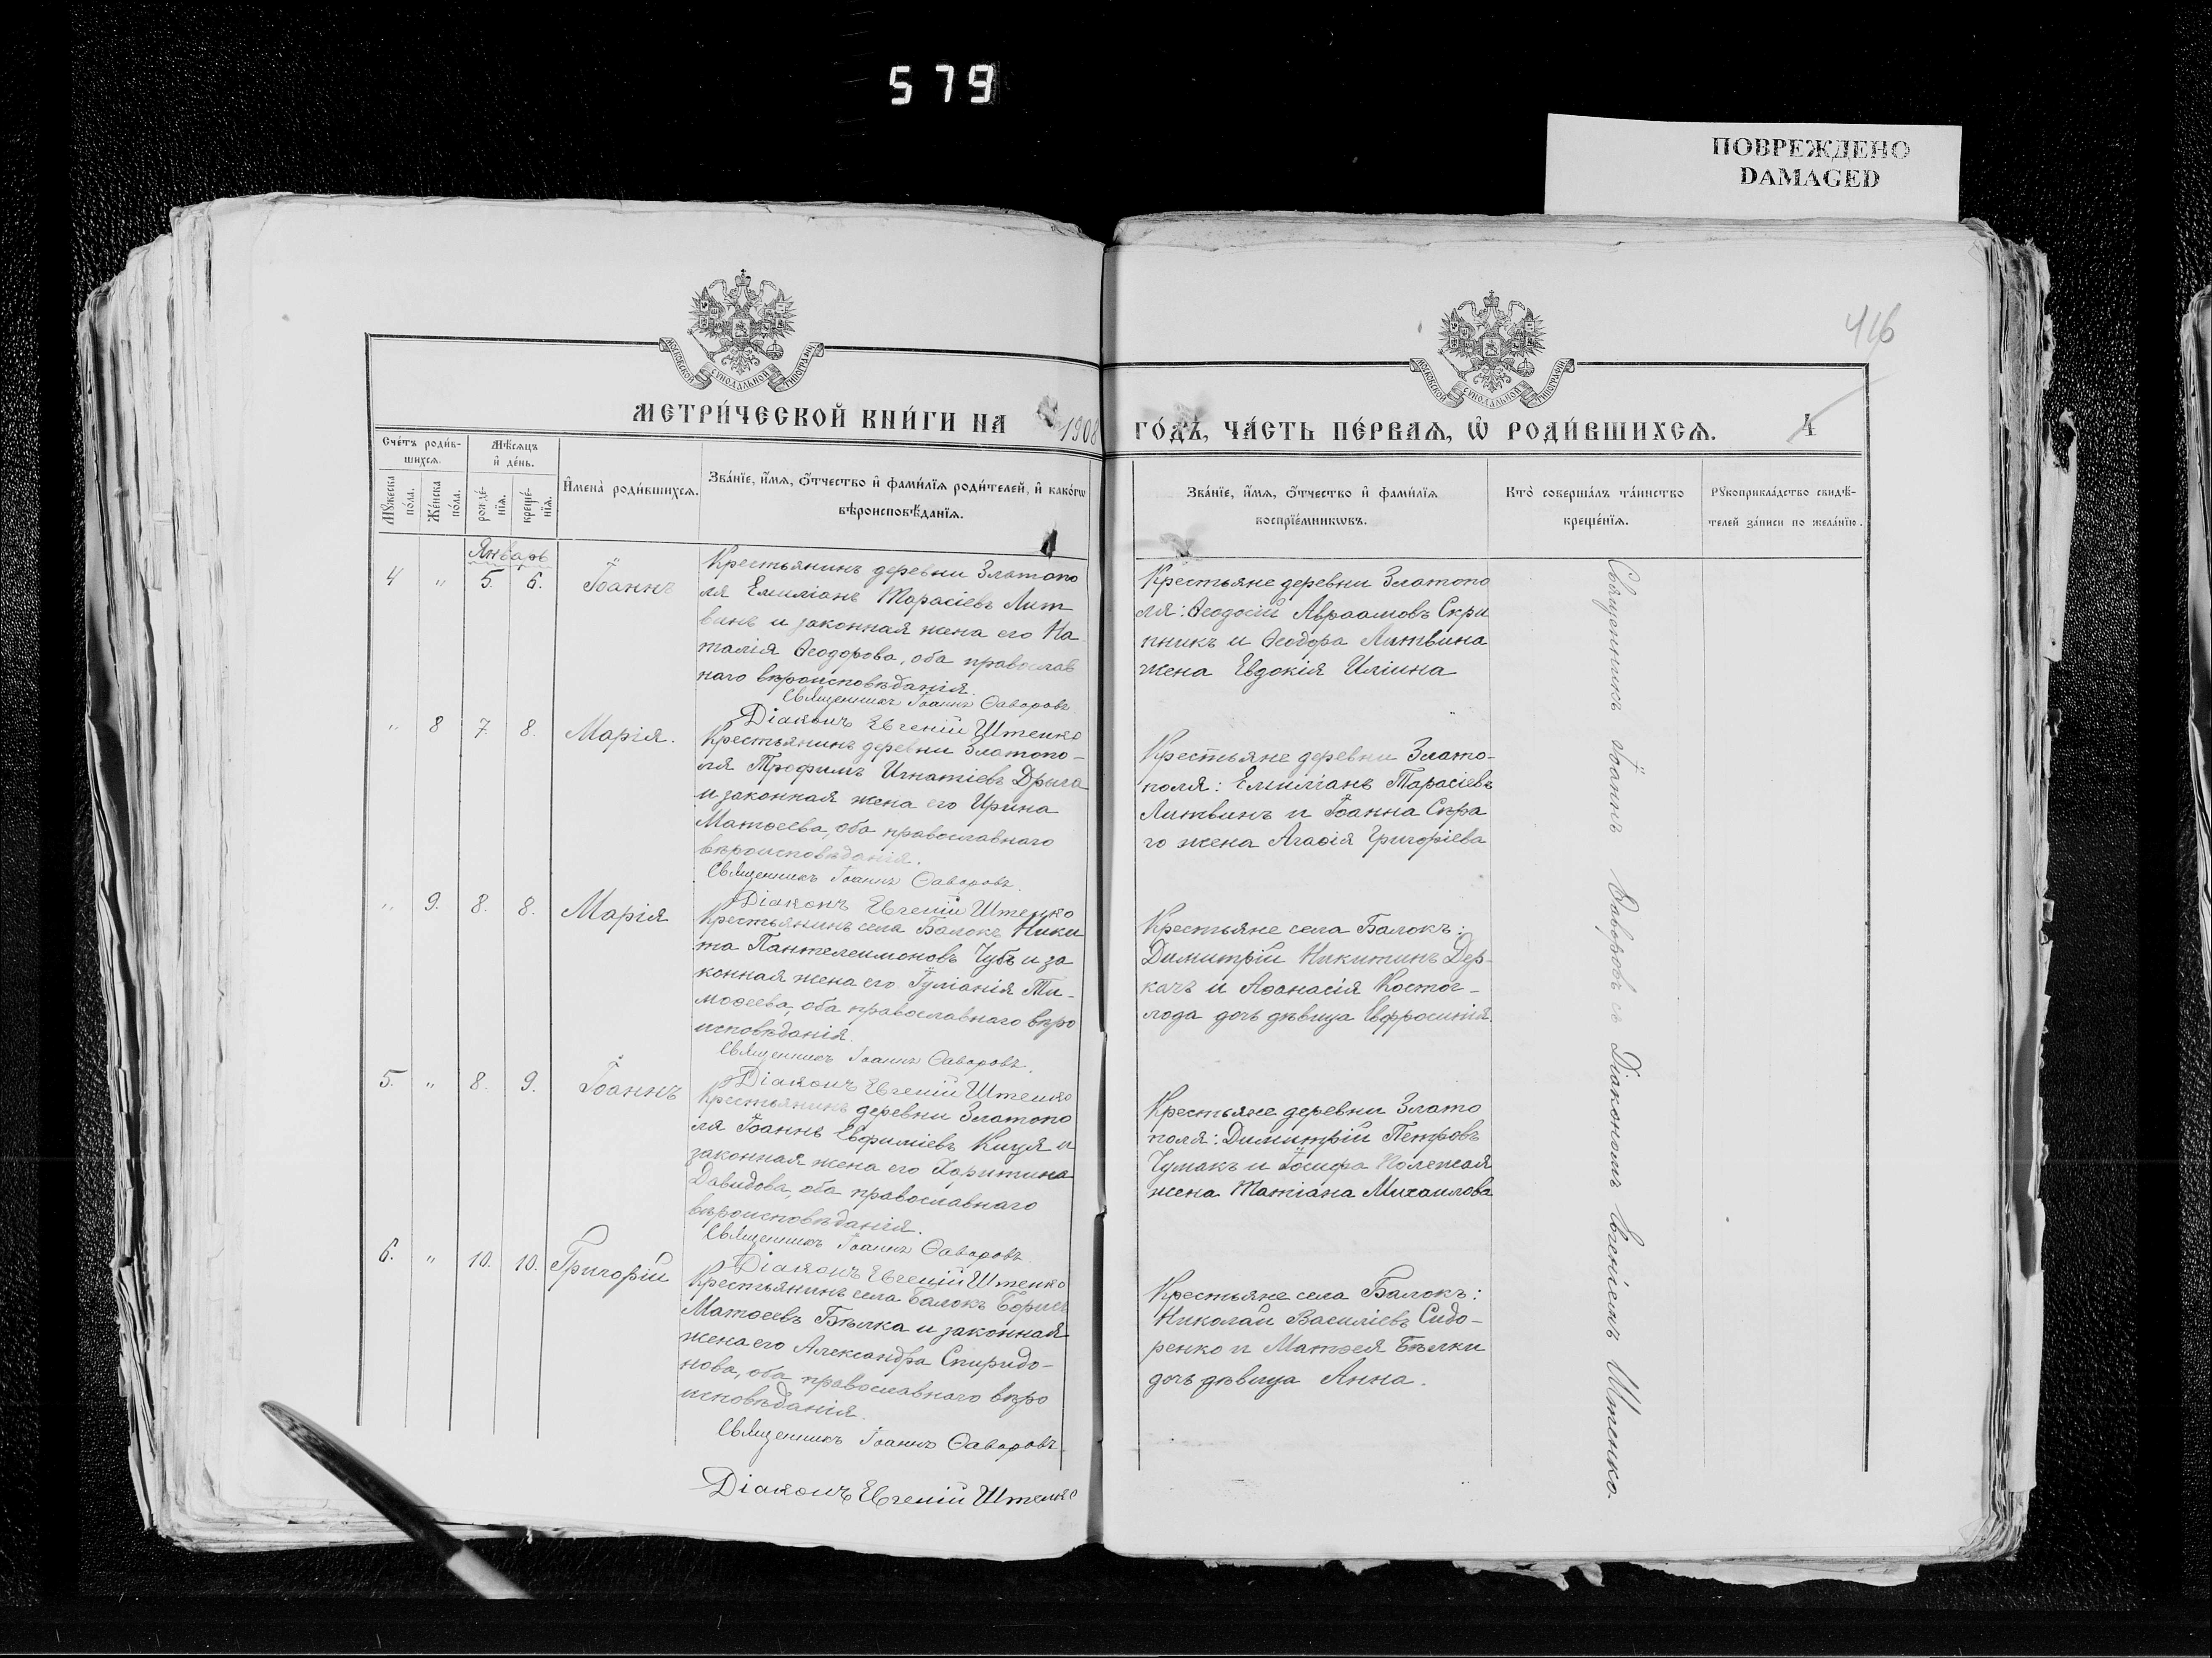 579
ПОВРЕЖДЕНО
DAMAGED
416
МОСКОВСКОЙ СУНОДАЛЬНОЙ ТИПОГРАФІИ
МОСКОВСКОЙ СУНОДАЛЬНОЙ ТИПОГРАФІИ
МЕТРИ́ЧЕСКОЙ КНИ́ГИ НА 1908
ГО́ДЪ, ЧА́СТЬ ПЕ́РВАѦ, Ѡ҆ РОДИ́ВШИХСѦ.
4
Сче́тъ роди́в-
шихсѧ.
Мѣ́сѧцъ
и҆ де́нь.
Мꙋ́жеска
по́ла.
Же́нска
по́ла.
рожде́-
нїѧ.
креще́-
нїѧ.
И҆мена̀ роди́вшихсѧ.
Зва́нїе, и҆́мѧ, ѻ҆́тчество и҆ фами́лїѧ роди́телей, и҆ како́гѡ
вѣроисповѣ́данїѧ.
Зва́нїе, и҆́мѧ, ѻ҆́тчество и҆ фами́лїѧ
воспрїе́мникѡвъ.
Кто̀ соверша́лъ та́инство
креще́нїѧ.
Рꙋкоприкла́дство свидѣ́-
телей за́писи по жела́нїю.
Январь
4 " 5. 6. Іоаннъ
Крестьянинъ деревни Златопо
ля Емиліанъ Тарасіевъ Лит
винъ и законная жена его На
талія Ѳеодорова, оба православ
наго вѣроисповѣданія.
Священникъ Іоаннъ Ѳаворовъ
Діаконъ Евгеній Штенко
Крестьяне деревни Златопо
ля: Ѳеодосій Авраамовъ Скри
пникъ и Ѳеодора Литвина
жена Евдокія Иліина
" 8 7. 8. Марія.
Крестьянинъ деревни Златопо-
ля Трофимъ Игнатіевъ Дрыга
и законная жена его Ирина
Матѳеева, оба православнаго
вѣроисповѣданія.
Священникъ Іоаннъ Ѳаворовъ.
Діаконъ Евгеній Штенко
Крестьяне деревни Злато-
поля: Емиліанъ Тарасіевъ
Литвинъ и Іоанна Сѣра
го жена Агаѳія Григоріева
" 9. 8. 8. Марія
Крестьянинъ села Балокъ Ники
та Пантелеимоновъ Чубъ и за
конная жена его Іуліанія Ти-
моѳеева, оба православнаго вѣро
исповѣданія.
Священникъ Іоаннъ Ѳаворовъ.
Діаконъ Евгеній Штенко
Крестьяне села Балокъ:
Димитрій Никитинъ Дер-
качъ и Аѳанасія Костог-
лода дочь дѣвица Евфросинія
5. " 8. 9. Іоаннъ
Крестьянинъ деревни Златопо
ля Іоаннъ Евфиміевъ Куця и
законная жена его Харитина
Давидова, оба православнаго
вѣроисповѣданія.
Священникъ Іоаннъ Ѳаворовъ.
Діаконъ Евгеній Штенко
Крестьяне деревни Злато
поля: Димитрій Петровъ
Чумакъ и Іосифа Полежая
жена Татіана Михаилова
6. " 10. 10. Григорій
Крестьянинъ села Балокъ Борисъ
Матѳеевъ Бѣлка и законная
жена его Александра Спиридо-
нова, оба православнаго вѣро
исповѣданія.
Священникъ Іоаннъ Ѳаворовъ
Діаконъ Евгеній Штенко
Крестьяне села Балокъ:
Николай Василіевъ Сидо-
ренко и Матѳея Бѣлки
дочь дѣвица Анна.
Священникъ Іоаннъ Ѳаворовъ съ Діакономъ Евгеніемъ Штенко.